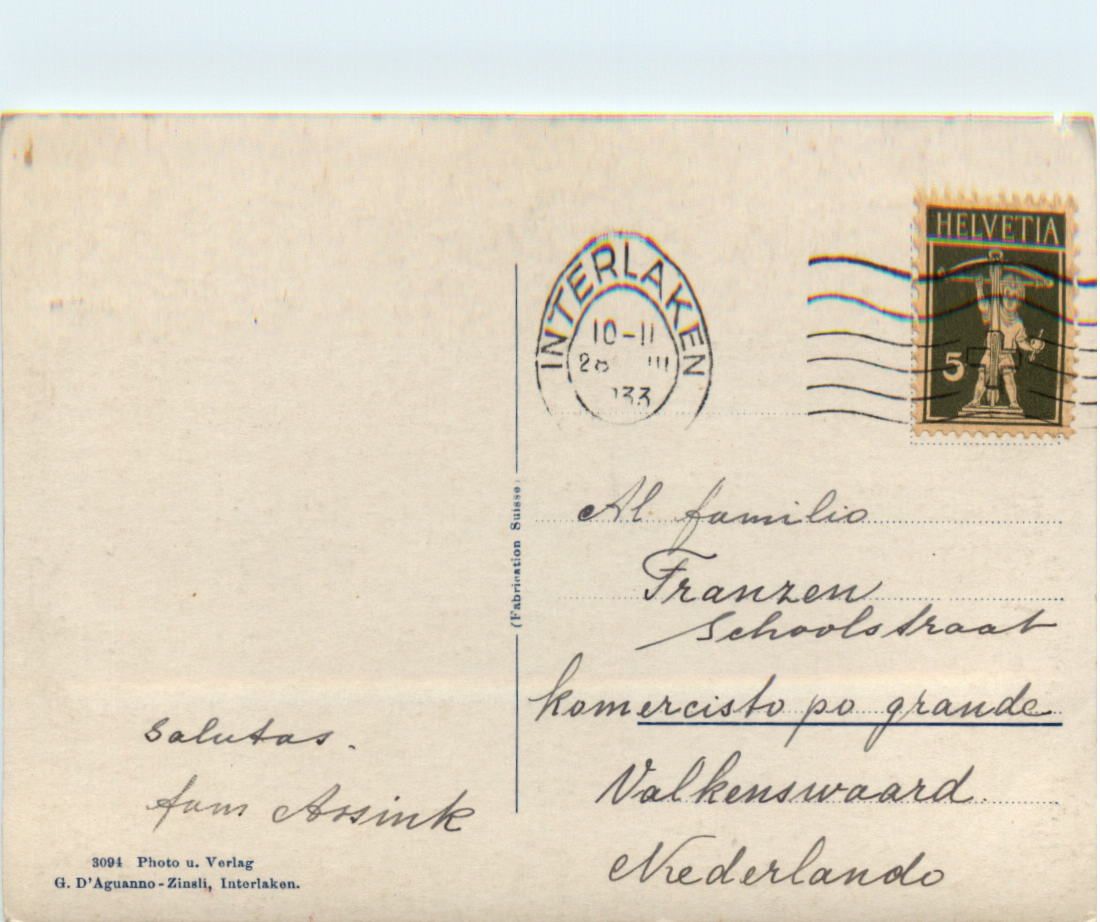 HELVETIA
5
INTERLAKEN
10-11
28 III
33
(Fabrication Suisse)
Al familio
Franzen
Schoolstraat
komercisto po grande
Valkenswaard
Nederlando
Salutas.
fam Assink
3094 Photo u. Verlag
G. D'Aguanno-Zinsli, Interlaken.